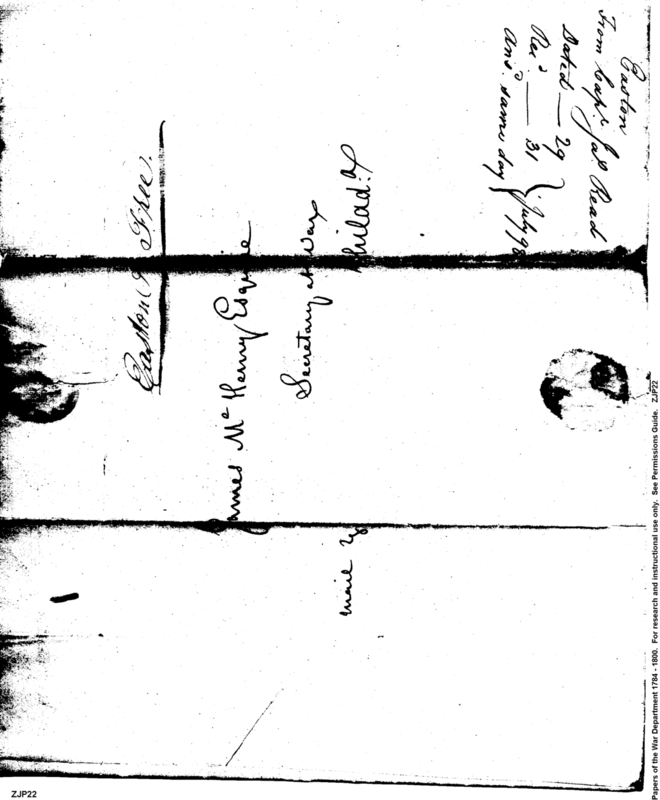 Easton
From Capt. Jas Read
Dated — 29
Rec.d — 31
} July 98
Ans.d same day
Easton & Free.
James Mc Henry Esquire
Secretary at War
Philad.a
mail
Papers of the War Department 1784 - 1800. For research and instructional use only. See Permissions Guide. ZJP22
ZJP22